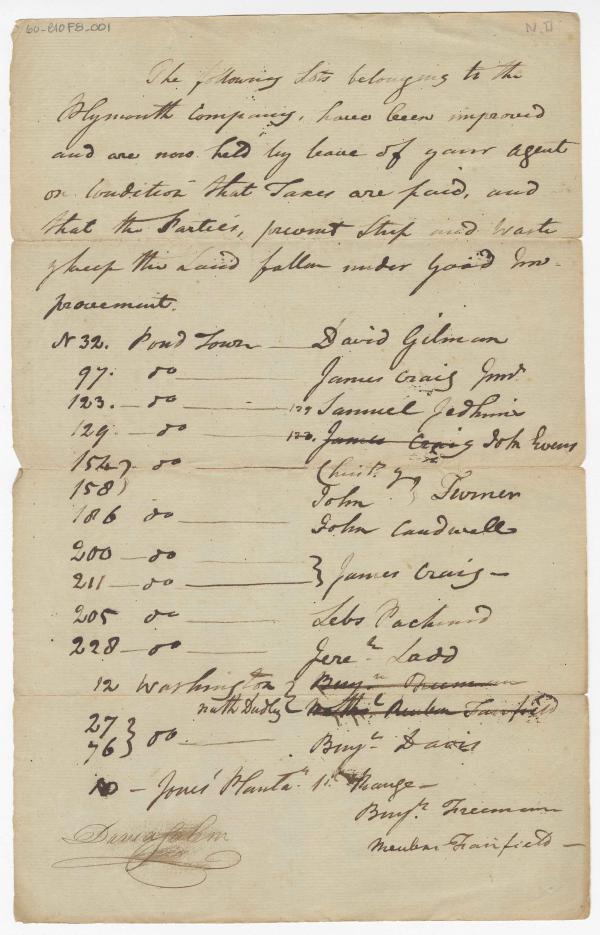 60-210F8-001
N.D
The following Lots belonging to the
Plymouth Company, have been improved
and are now held by leave of your Agent
on Condition that Taxes are paid, and
that the Parties, prevent Strip and Waste
& keep the Land fallen under Good Im-
provement.
N 32. Pond Town — David Gilman
97. do — James Craig Junr
123. — do — 129 Samuel
129. — do — 123. James Craig John Evens
154 } do — Christr &
158 } John } Turner
186 do — John Caudwell
200 — do — } James Craig —
211 — do —
205 do — Lebs Packard
228 — do — Jereh Ladd
12 Washington { Benjn Freeman
nath Dudley { Reuben Fairfield
27 } do — Benjn Davis
76 }
10 — Jones' Plantan 1st Range —
Benjn Freeman
Reuben Fairfield —
David